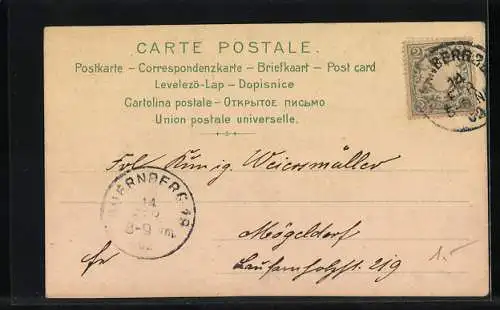 CARTE POSTALE.
Postkarte – Correspondenzkarte – Briefkaart – Post card
Levelező-Lap – Dopisnice
Cartolina postale – ОТКРЫТОЕ ПИСЬМО
Union postale universelle.
2
Frl. Kunig. Weiersmüller
NUERNBERG 18
14
8-9
Mögeldorf
Laufamholzstr. 219
fr
1.-